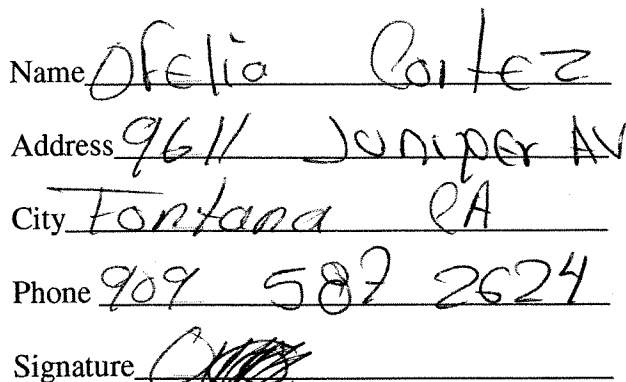 Name Ofelia Cortez
Address 9611 Juniper AV
City Fontana CA
Phone 909 587 2624
Signature